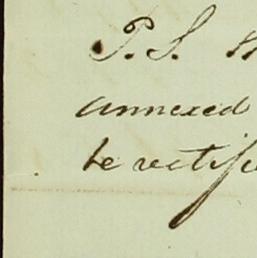 P.S.
annexed
be rectif